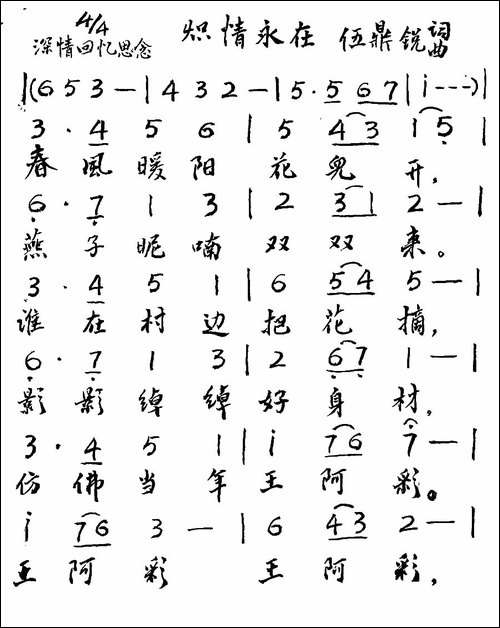 4/4
深情回忆思念
炽情永在 伍鼎锐词曲
|(6 5 3 —|4 3 2 —|5·5 6 7|i---)|
3·4 5 6|5 4 3 1 5|
春風暖阳花兒开,
6·7 1 3|2 3 1 2—|
燕子昵喃双双来。
3·4 5 1|6 5 4 5—|
谁在村边把花摘,
6·7 1 3|2 6 7 1—|
影影绰绰好身材,
3·4 5 1|i 7 6 7—|
仿佛当年王阿彩。
i 7 6 3 —|6 4 3 2—|
王阿彩 王阿彩,